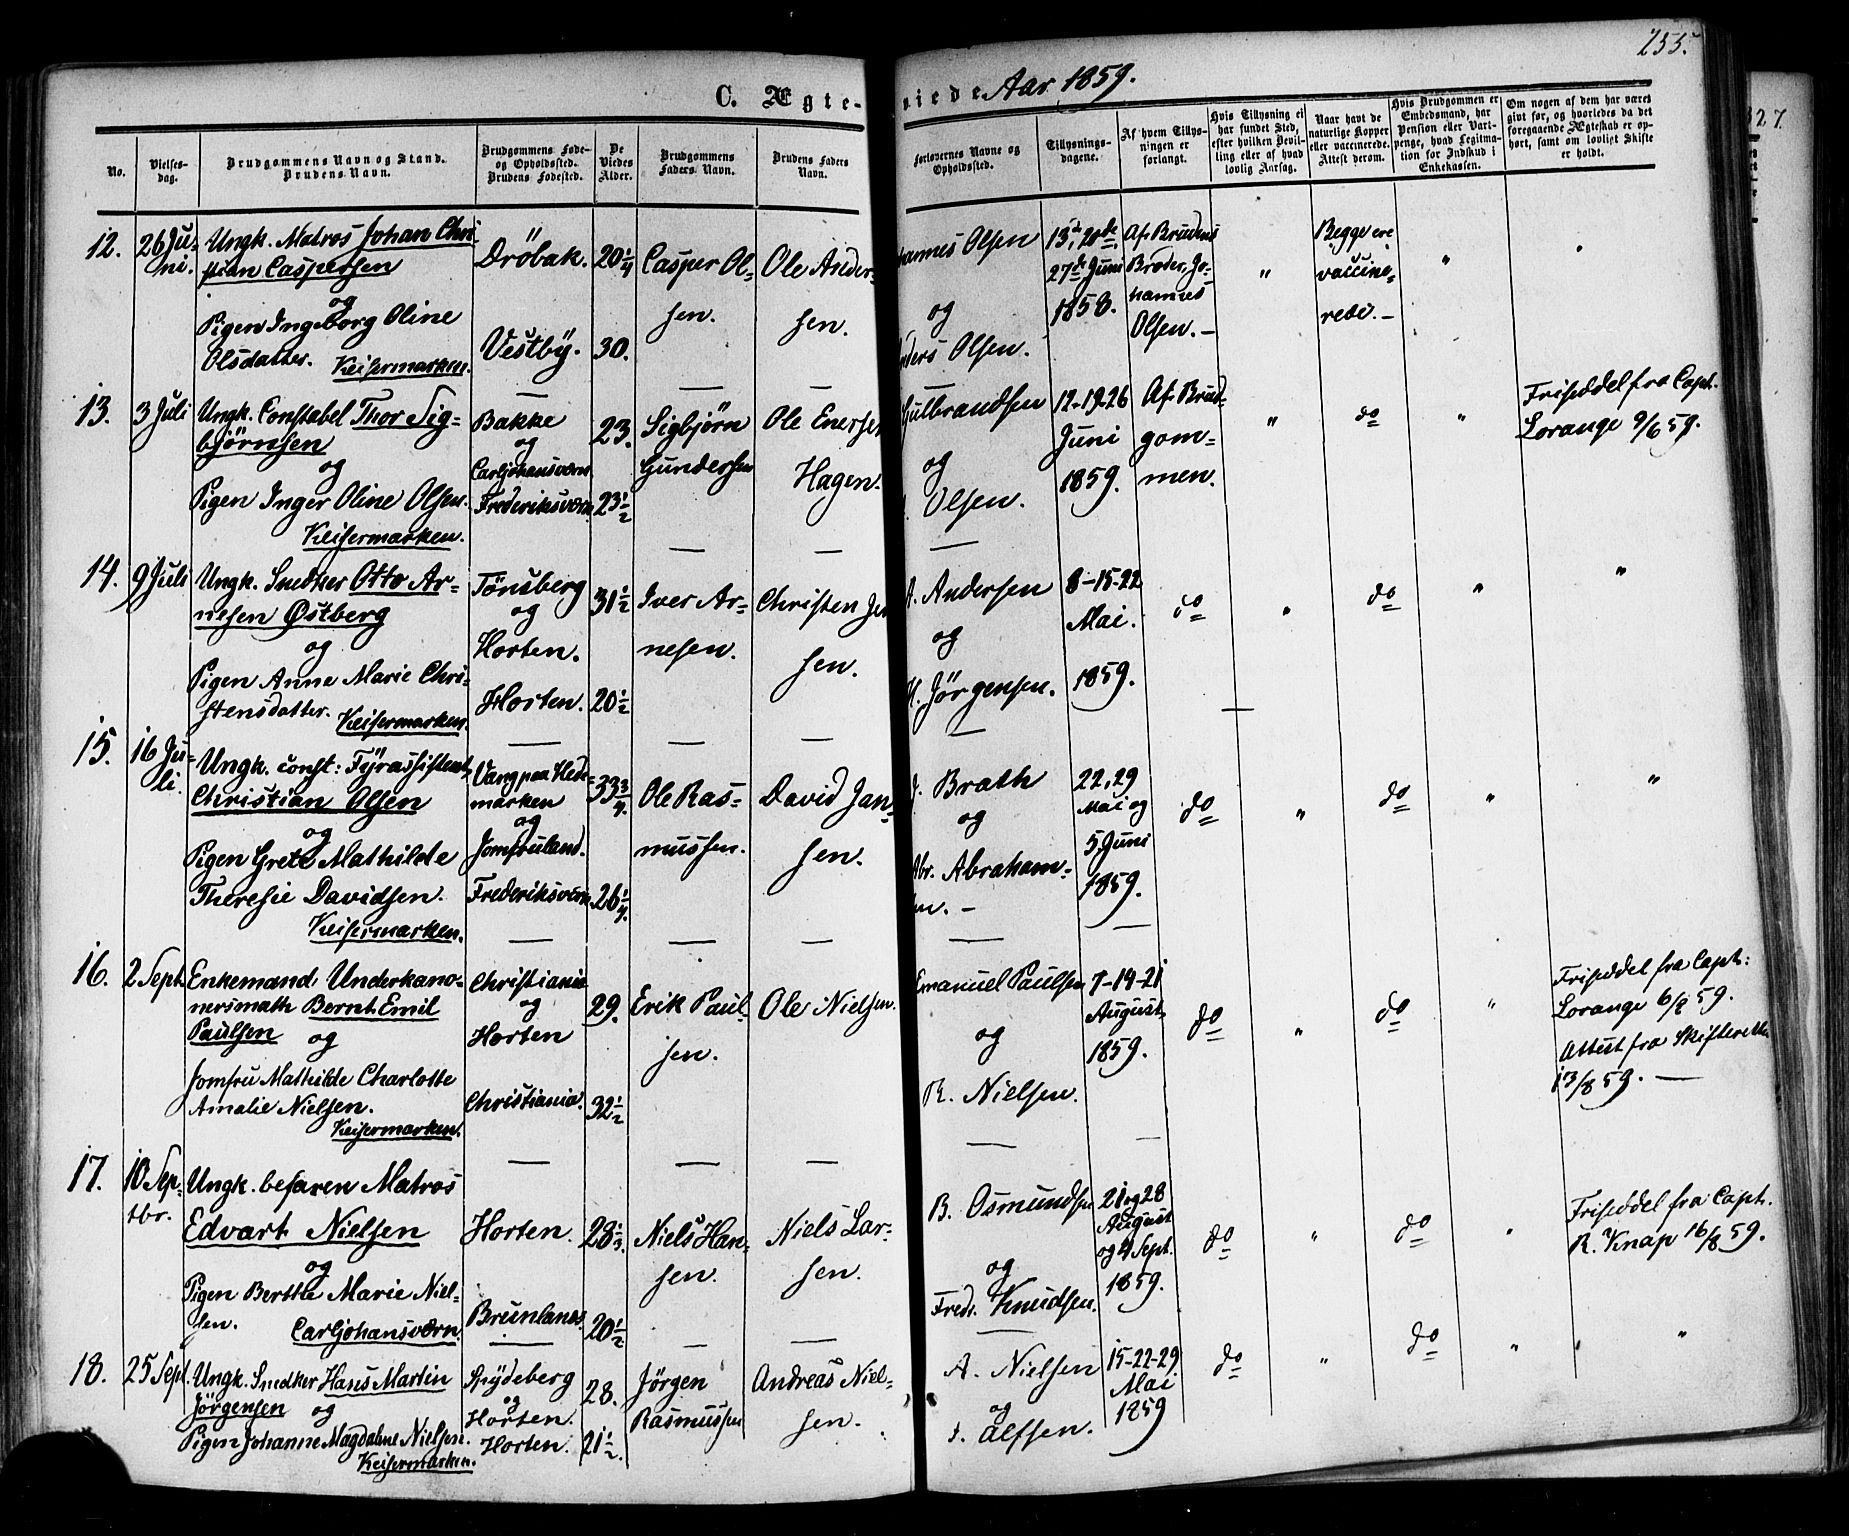 255.
C. Ægte-
viede Aar 1859.
No.
Vielses-
dag.
Brudgommens Navn og Stand.
Brudens Navn.
Brudgommens Føde-
og Opholdssted.
Brudens Fødested.
De
Viedes
Alder.
Brudgommens
Faders Navn.
Brudens Faders
Navn.
Forlovernes Navne og
Opholdssted.
Tillysnings-
dagene.
Af hvem Tillys-
ningen er
forlangt.
Hvis Tillysning ei
har fundet Sted,
efter hvilken Bevil-
ling eller af hvad
lovlig Aarsag.
Naar havt de
naturlige Kopper
eller vaccinerede.
Attest derom.
Hvis Brudgommen er
Embedsmand, har
Pension eller Vart-
penge, hvad Legitima-
tion for Indskud i
Enkekassen.
Om nogen af dem har været
givt før, og hvorledes da det
foregaaende Ægteskab er op-
hørt, samt om lovligt Skifte
er holdt.
327.
12.
26 Ju-
ni.
Ungk. Matros Johan Chri-
stian Caspersen
og
Pigen Ingeborg Oline
Olsdatter. Keisermarken.
Dröbak.
Vestby.
20 1/4
30.
Casper Ol-
sen.
Ole Ander-
sen.
hannes Olsen
og
nders Olsen.
13de, 20de,
27de Juni
1858.
Af Brudens
Broder, Jo-
hannes
Olsen. —
"
Begge ere
vaccine-
rede. —
"
13.
3 Juli
Ungk. Constabel Thor Sig-
bjørnsen
og
Pigen Inger Oline Olsen.
Keisermarken.
Bakke
og
Carljohansværn
Frederiksværn
23.
23 1/2
Sigbjørn
Gundersen
Ole Enersen
Hagen.
Gulbrandsen
og
Olsen.
12-19-26
Juni
1859.
Af Brud-
gom-
men.
"
do
"
Friseddel fra Capt.
Lorange 9/6 59.
14.
9 Juli
Ungk. Snedker Otto Ar-
nesen Østberg
og
Pigen Anne Marie Chri-
stensdatter. Keisermarken.
Tönsberg
og
Horten.
Horten.
31 1/2
20 1/2
Iver Ar-
nesen.
Christen Jen
sen.
A. Andersen
og
H. Jörgensen.
8-15-22
Mai.
1859.
do
"
do
"
"
15.
16 Ju-
li.
Ungk. const: Fyrassistent
Christian Olsen
og
Pigen Grete Mathilde
Theresie Davidsen.
Keisermarken.
Vang paa Hede-
marken
og
Jomfruland.
Frederiksværn
33 3/4
26 1/4.
Ole Ras-
mussen.
David Jan-
sen.
J. Brath
og
Abr. Abraham-
en. —
22, 29
Mai og
5 Juni
1859.
do
"
do
"
"
16.
2 Sept.
Enkemand, Underkano-
nersmath Bernt Emil
Paulsen og
Jomfru Mathilde Charlotte
Amalie Nielsen.
Keisermarken.
Christiania
og
Horten
Christiania.
29.
32 1/2
Erik Paul-
sen.
Ole Nielsen.
Emanuel Paulsen
og
R. Nielsen.
7-14-21
August
1859.
do
"
do
"
Friseddel fra Capt:
Lorange 6/8 59.
Attest fra Skifteretten
13/8 59. —
17.
10 Sep-
tbr.
Ungk. befaren Matros
Edvart Nielsen
og
Pigen Berthe Marie Niel-
sen. Carljohansværn.
Horten.
Brunlanæs.
28 1/3
20 1/2
Niels Han-
sen.
Niels Lar-
sen.
B. Osmundsen
og
Fredr. Knudsen.
21 og 28
August
og 4 Sept.
1859.
do
"
do
"
Friseddel fra Capt.
R. Knap 16/8 59.
18.
25 Sept
Ungk. Snedker Hans Martin
Jörgensen og
Pigen Johanne Magdalene Nielsen.
Keisermarken.
Spydeberg
og
Horten.
Horten.
28.
21 1/2.
Jörgen
Rasmussen
Andreas Niel-
sen.
A. Nielsen
og
Alfsen.
15-22-29
Mai
1859
do
"
do
"
"